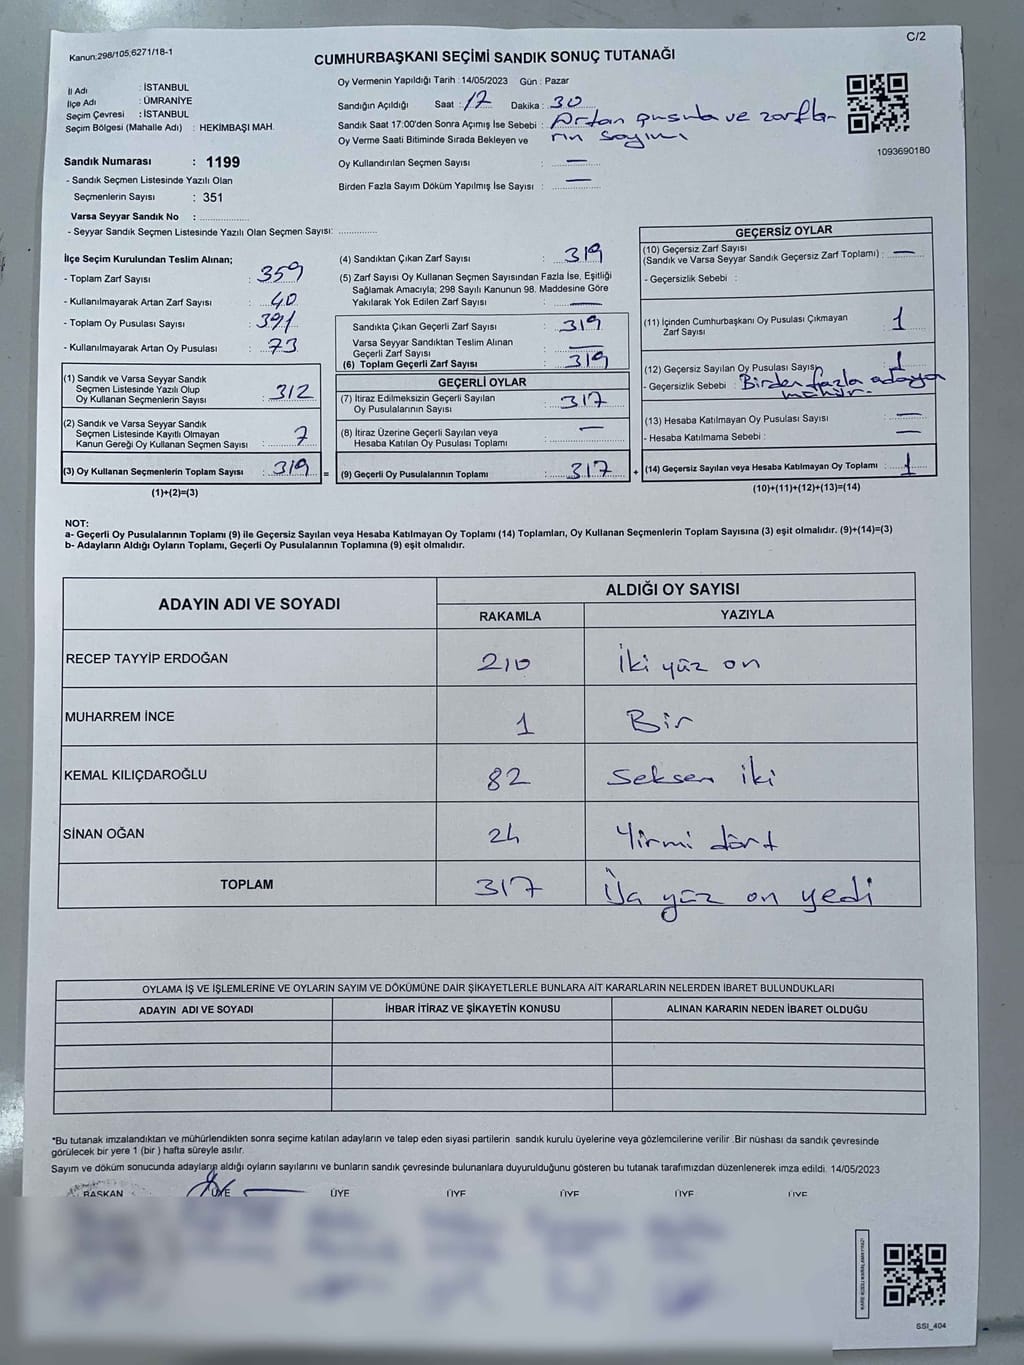 Kanun:298/105,6271/18-1
C/2
CUMHURBAŞKANI SEÇİMİ SANDIK SONUÇ TUTANAĞI
İl Adı : İSTANBUL
İlçe Adı : ÜMRANİYE
Seçim Çevresi : İSTANBUL
Seçim Bölgesi (Mahalle Adı) : HEKİMBAŞI MAH.
Sandık Numarası : 1199
- Sandık Seçmen Listesinde Yazılı Olan
Seçmenlerin Sayısı : 351
Varsa Seyyar Sandık No :
- Seyyar Sandık Seçmen Listesinde Yazılı Olan Seçmen Sayısı:
Oy Vermenin Yapıldığı Tarih : 14/05/2023 Gün : Pazar
Sandığın Açıldığı Saat : 17 Dakika : 30
Sandık Saat 17:00'den Sonra Açımış İse Sebebi : Artan pusula ve zarfla-
Oy Verme Saati Bitiminde Sırada Bekleyen ve rın sayımı
Oy Kullandırılan Seçmen Sayısı : —
Birden Fazla Sayım Döküm Yapılmış İse Sayısı : —
1093690180
İlçe Seçim Kurulundan Teslim Alınan;
- Toplam Zarf Sayısı : 359
- Kullanılmayarak Artan Zarf Sayısı : 40
- Toplam Oy Pusulası Sayısı : 391
- Kullanılmayarak Artan Oy Pusulası : 73
(1) Sandık ve Varsa Seyyar Sandık
Seçmen Listesinde Yazılı Olup
Oy Kullanan Seçmenlerin Sayısı : 312
(2) Sandık ve Varsa Seyyar Sandık
Seçmen Listesinde Kayıtlı Olmayan
Kanun Gereği Oy Kullanan Seçmen Sayısı : 7
(3) Oy Kullanan Seçmenlerin Toplam Sayısı : 319
(1)+(2)=(3)
=
(4) Sandıktan Çıkan Zarf Sayısı : 319
(5) Zarf Sayısı Oy Kullanan Seçmen Sayısından Fazla İse, Eşitliği
Sağlamak Amacıyla; 298 Sayılı Kanunun 98. Maddesine Göre
Yakılarak Yok Edilen Zarf Sayısı : —
Sandıkta Çıkan Geçerli Zarf Sayısı : 319
Varsa Seyyar Sandıktan Teslim Alınan
Geçerli Zarf Sayısı : —
(6) Toplam Geçerli Zarf Sayısı : 319
GEÇERLİ OYLAR
(7) İtiraz Edilmeksizin Geçerli Sayılan
Oy Pusulalarının Sayısı : 317
(8) İtiraz Üzerine Geçerli Sayılan veya
Hesaba Katılan Oy Pusulası Toplamı : —
(9) Geçerli Oy Pusulalarının Toplamı : 317
+
GEÇERSİZ OYLAR
(10) Geçersiz Zarf Sayısı
(Sandık ve Varsa Seyyar Sandık Geçersiz Zarf Toplamı) : —
- Geçersizlik Sebebi :
(11) İçinden Cumhurbaşkanı Oy Pusulası Çıkmayan
Zarf Sayısı : 1
(12) Geçersiz Sayılan Oy Pusulası Sayısı : 1
- Geçersizlik Sebebi : Birden fazla adaya
mühür.
(13) Hesaba Katılmayan Oy Pusulası Sayısı : —
- Hesaba Katılmama Sebebi : —
(14) Geçersiz Sayılan veya Hesaba Katılmayan Oy Toplamı : 1
(10)+(11)+(12)+(13)=(14)
NOT:
a- Geçerli Oy Pusulaların Toplamı (9) ile Geçersiz Sayılan veya Hesaba Katılmayan Oy Toplamı (14) Toplamları, Oy Kullanan Seçmenlerin Toplam Sayısına (3) eşit olmalıdır. (9)+(14)=(3)
b- Adayların Aldığı Oyların Toplamı, Geçerli Oy Pusulalarının Toplamına (9) eşit olmalıdır.
ADAYIN ADI VE SOYADI
ALDIĞI OY SAYISI
RAKAMLA YAZIYLA
RECEP TAYYİP ERDOĞAN 210 İki yüz on
MUHARREM İNCE 1 Bir
KEMAL KILIÇDAROĞLU 82 Seksen iki
SİNAN OĞAN 24 Yirmi dört
TOPLAM 317 yüz on yedi
OYLAMA İŞ VE İŞLEMLERİNE VE OYLARIN SAYIM VE DÖKÜMÜNE DAİR ŞİKAYETLERLE BUNLARA AİT KARARLARIN NELERDEN İBARET BULUNDUKLARI
ADAYIN ADI VE SOYADI İHBAR İTİRAZ VE ŞİKAYETİN KONUSU ALINAN KARARIN NEDEN İBARET OLDUĞU
*Bu tutanak imzalandıktan ve mühürlendikten sonra seçime katılan adayların ve talep eden siyasi partilerin sandık kurulu üyelerine veya gözlemcilerine verilir .Bir nüshası da sandık çevresinde
görülecek bir yere 1 (bir ) hafta süreyle asılır.
Sayım ve döküm sonucunda adayların aldığı oyların sayılarını ve bunların sandık çevresinde bulunanlara duyurulduğunu gösteren bu tutanak tarafımızdan düzenlenerek imza edildi. 14/05/2023
BAŞKAN ÜYE ÜYE ÜYE ÜYE ÜYE ÜYE
SSI_404